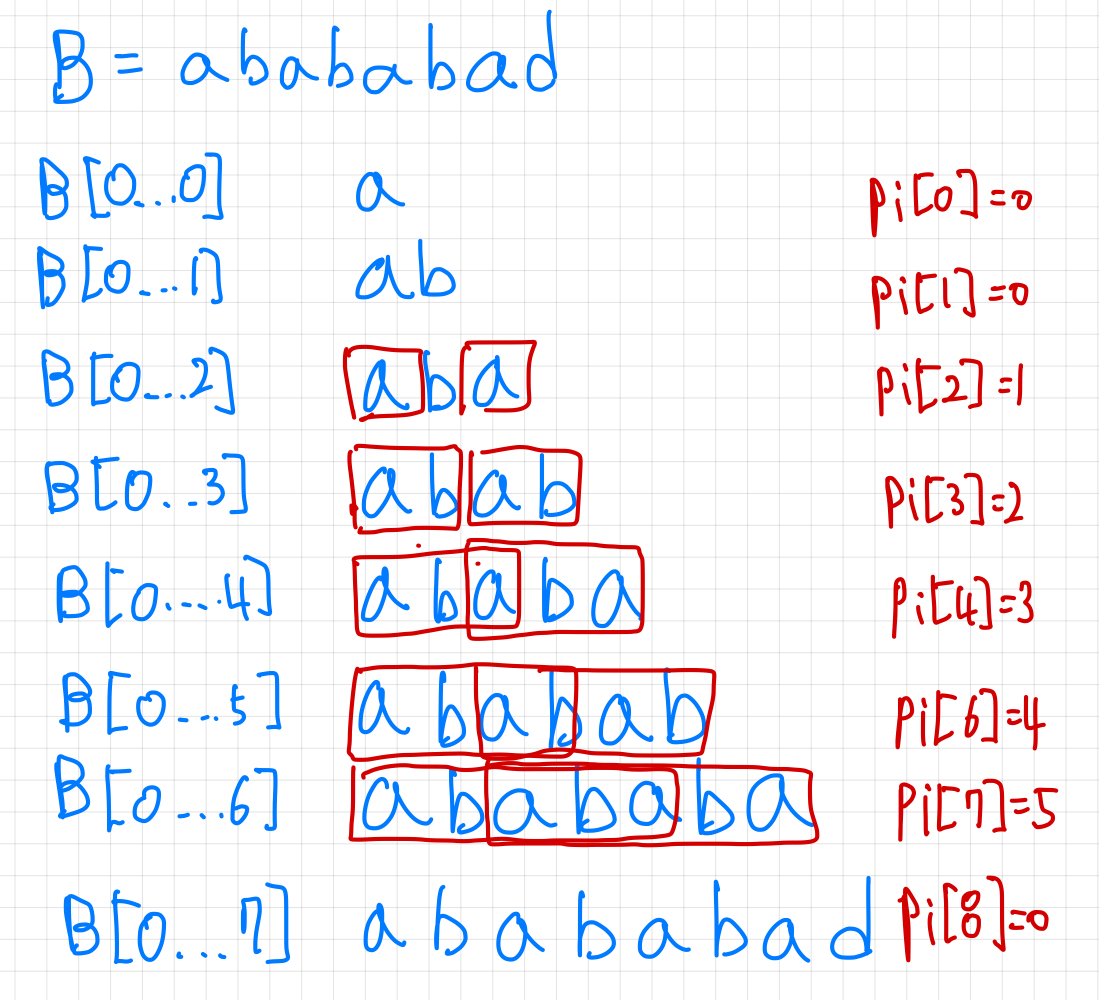 B = abababad
B[0...0] a pi[0]=0
B[0...1] ab pi[1]=0
B[0...2] aba pi[2]=1
B[0...3] abab pi[3]=2
B[0....4] ababa pi[4]=3
B[0...5] ababab pi[6]=4
B[0...6] abababa pi[7]=5
B[0...7] abababad pi[8]=0